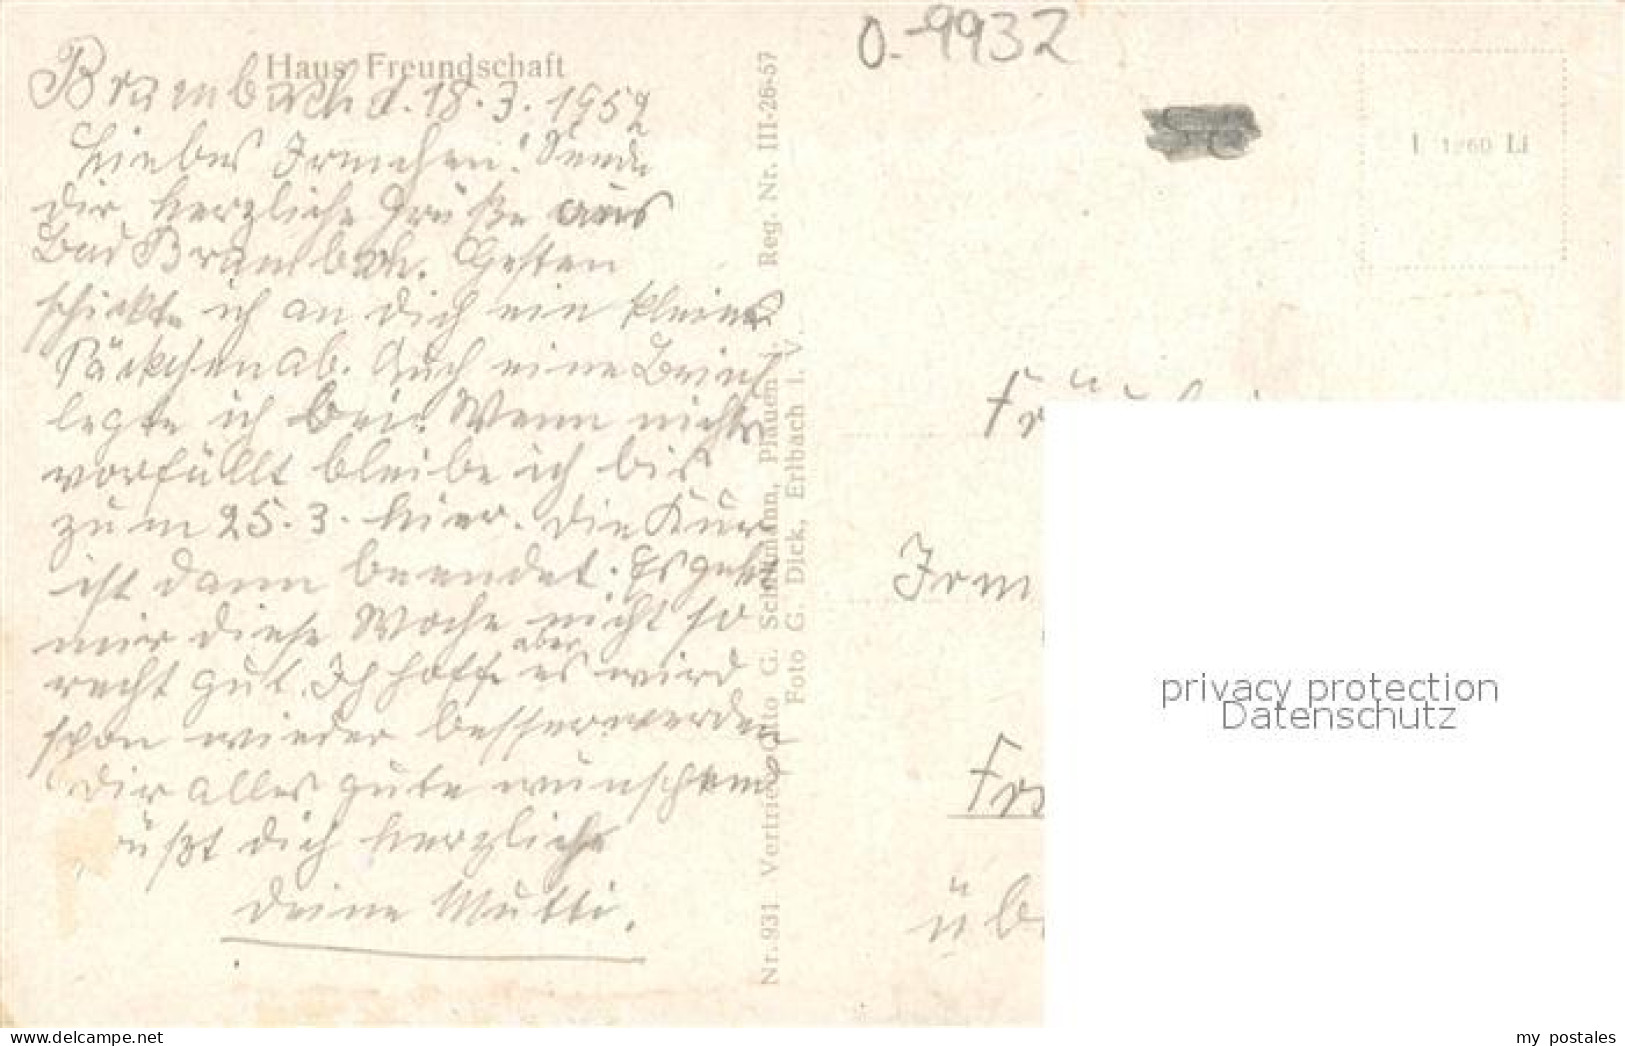 Haus Freundschaft
Brambach d. 18.3.1959
Liebes Irmchen! Sende
dir herzliche Grüße aus
Bad Brambach. Gestern
schickte ich an dich ein kleines
Päckchen ab. Auch einen Brief
legte ich bei. Wenn nichts
vorfällt bleibe ich bis
zum 25.3. hier. Die Kur
ist dann beendet. Es geht
mir diese Woche nicht so
recht gut. Ich hoffe aber es wird
schon wieder besser werden
Dir alles gute wünschend
üßt dich herzlichst
deine Mutti.
Nr. 931 Vertrieb Otto G. Schillmann, Plauen 1, Reg. Nr. III-26-57
Foto G. Dick, Erlbach i. V.
0.-9932
I 1260 Li
Fräulein
Irm
über
privacy protection
Datenschutz
my postales